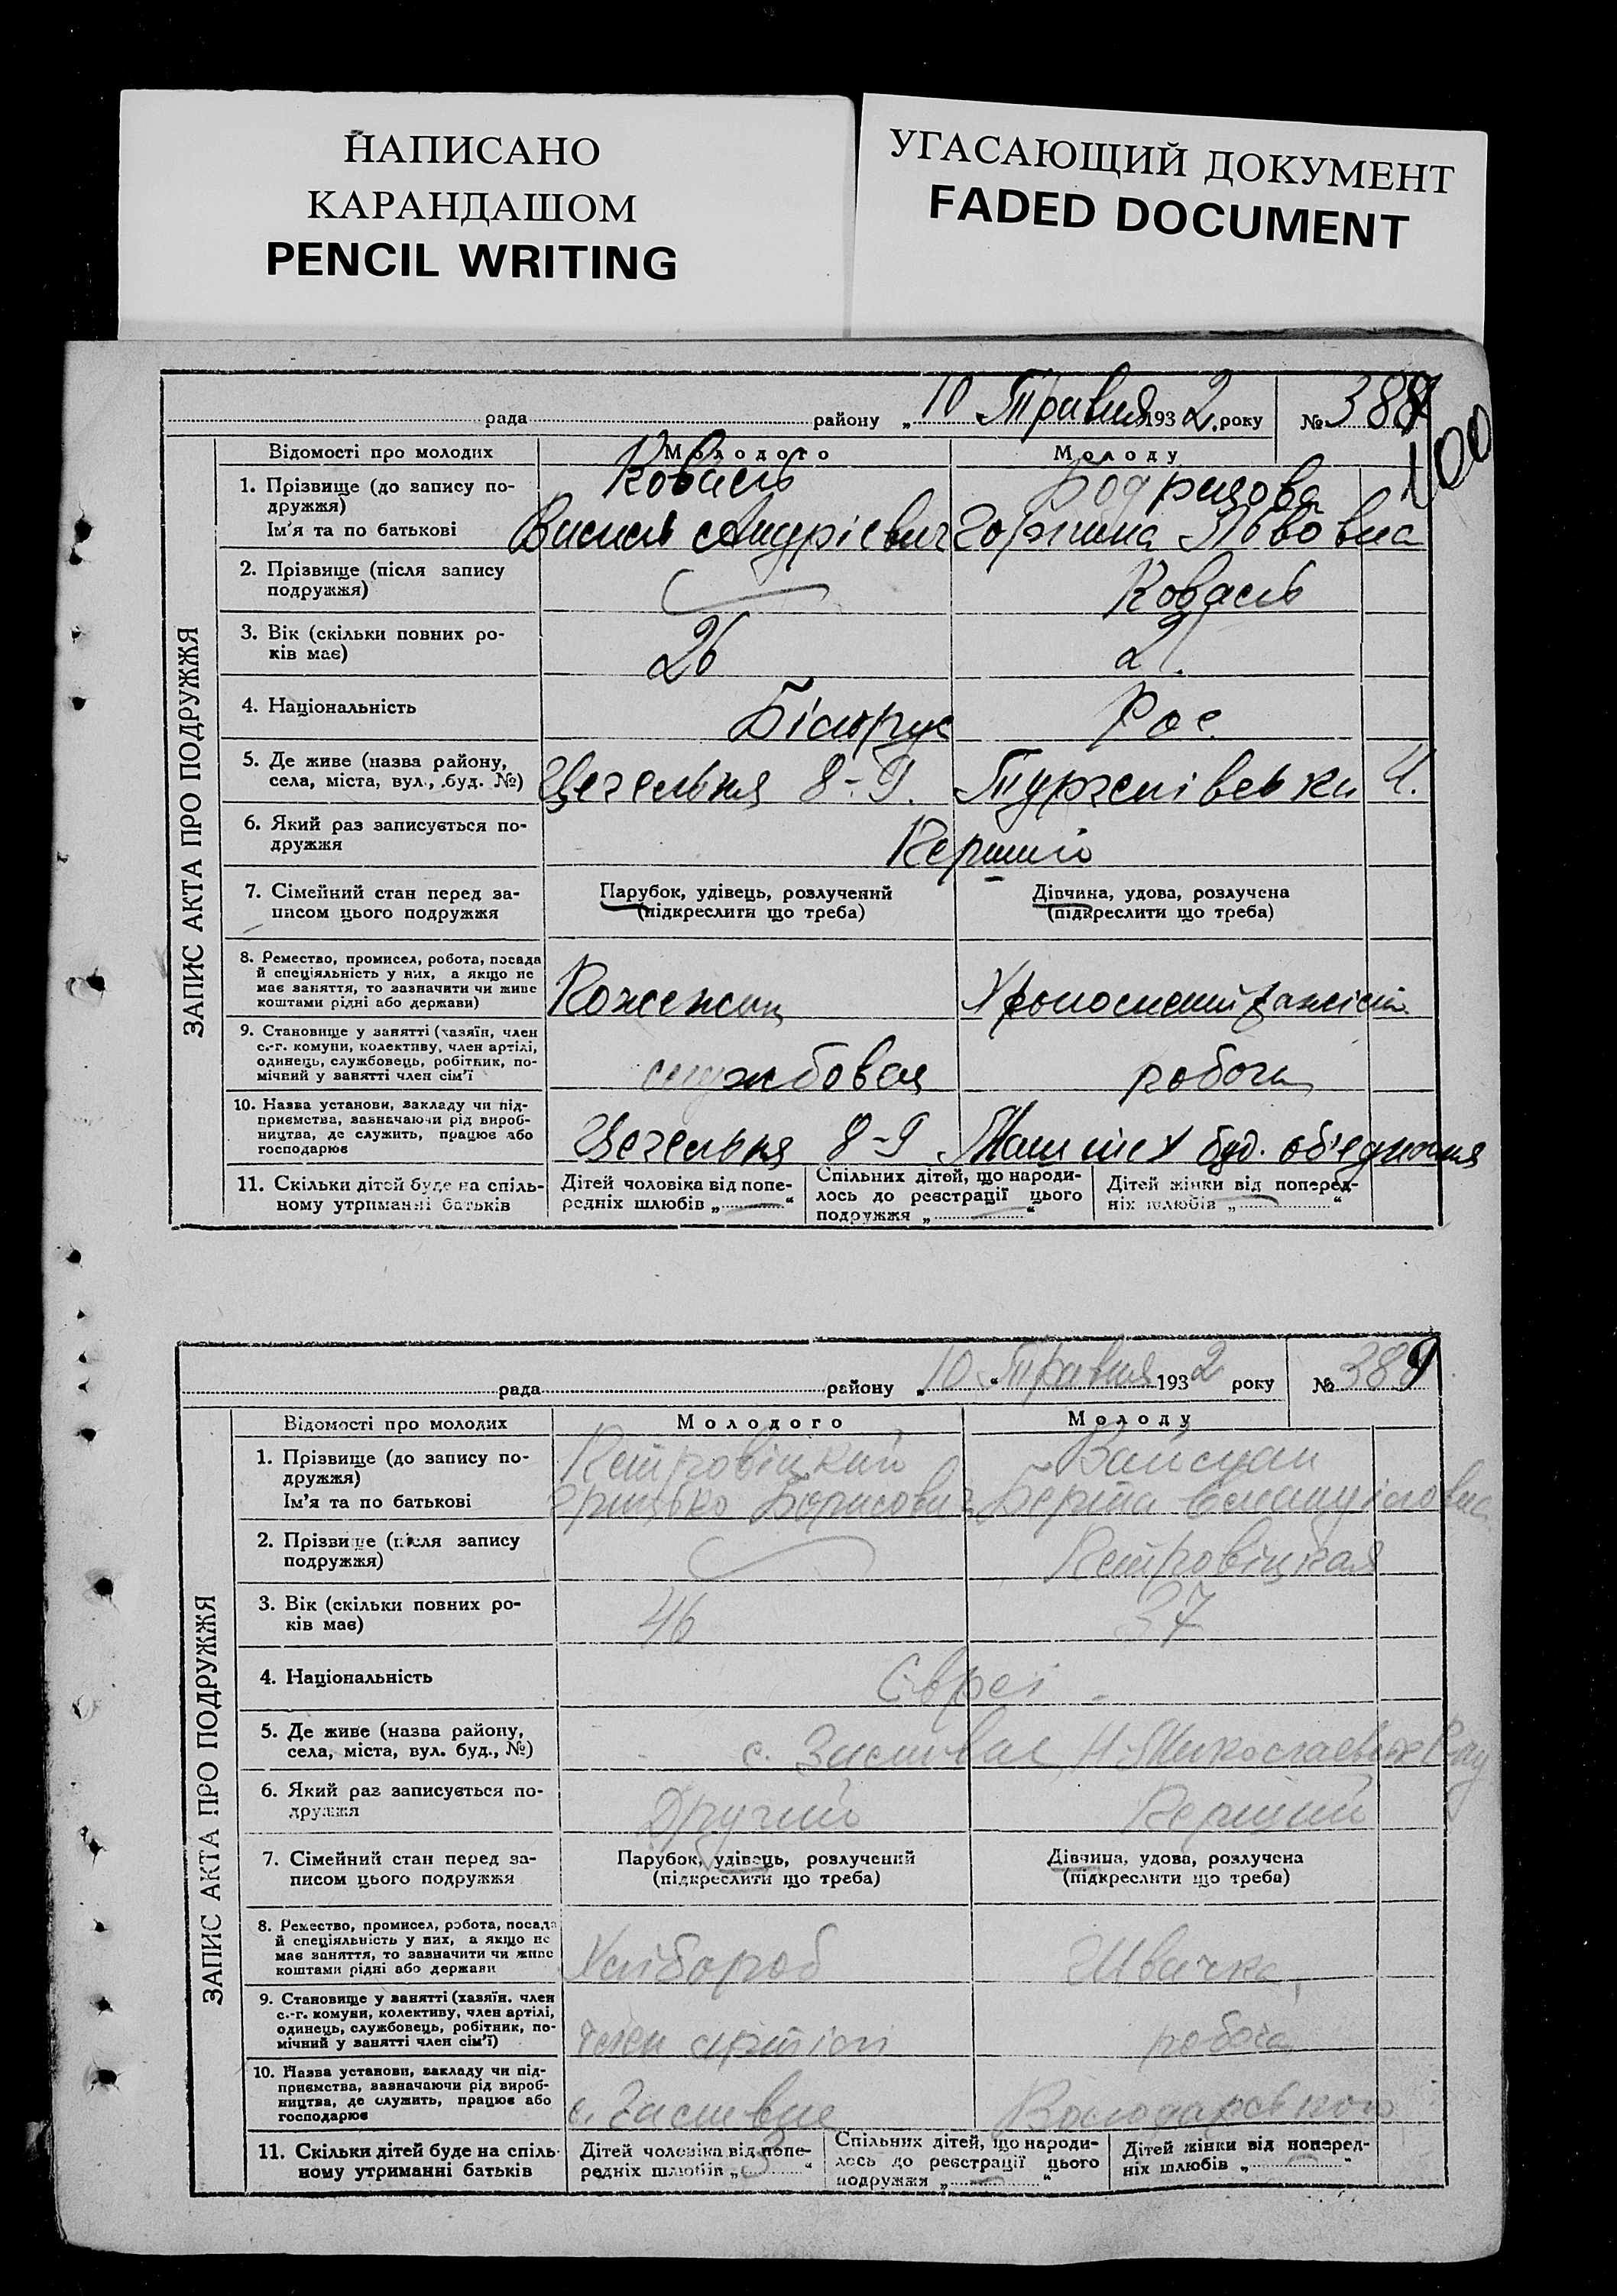 НАПИСАНО
КАРАНДАШОМ
PENCIL WRITING
УГАСАЮЩИЙ ДОКУМЕНТ
FADED DOCUMENT
ЗАПИС АКТА ПРО ПОДРУЖЖЯ
рада району „ 10 Травня 1932 року № 388
100
Відомості про молодих Молодого Молоду
1. Прізвище (до запису по-
дружжя)
Ім'я та по батькові
Коваль
Василь Андрієвич Львовна
2. Прізвище (після запису
подружжя)
Коваль
3. Вік (скільки повних ро-
ків має)
26 21.
4. Національність
Білорус Рос.
5. Де живе (назва району,
села, міста, вул., буд. №)
Цегельня 8-9. 4.
6. Який раз записується по-
дружжя
Перший
7. Сімейний стан перед за-
писом цього подружжя
Парубок, удівець, розлучений
(підкреслиги що треба)
Дівчина, удова, розлучена
(підкреслити що треба)
8. Ремество, промисел, робота, посада
й спеціяльність у них, а якщо не
має заняття, то зазначити чи живе
коштами рідні або держави)
9. Становище у занятті (хазяїн, член
с.-г. комуни, колективу, член артілі,
одинець, службовець, робітник, по-
мічний у занятті член сім'ї
службовец робоча
10. Назва установи, закладу чи під-
приємства, зазначаючи рід вироб-
ництва, де служить, працює або
господарює
Цегельня 8-9 буд. об'єднання
11. Скільки дітей буде на спіль-
ному утриманні батьків
Дітей чоловіка від попе-
редніх шлюбів „ — “
Спільних дітей, що народи-
лось до реєстрації цього
подружжя „ — “
Дітей жінки від поперед-
ніх шлюбів „ — “
ЗАПИС АКТА ПРО ПОДРУЖЖЯ
рада району „ 10 “ Травня 1932 року № 389
Відомості про молодих Молодого Молоду
1. Прізвище (до запису по-
дружжя)
Ім'я та по батькові
Петровіцкий Вайсман
Грицько Борисович Берта
2. Прізвище (після запису
подружжя)
Петровіцкая
3. Вік (скільки повних ро-
ків має)
46 37
4. Національність
Євреї
5. Де живе (назва району,
села, міста, вул. буд., №)
с.
6. Який раз записується по-
дружжя
Другий Перший
7. Сімейний стан перед за-
писом цього подружжя
Парубок, удівець, розлучений
(підкреслити що треба)
Дівчина, удова, розлучена
(підкреслити що треба)
8. Ремество, промисел, робота, посада
й спеціяльність у них, а якщо не
має заняття, то зазначити чи живе
коштами рідні або держави
Хлібороб Швачка
9. Становище у занятті (хазяїн. член
с.-г. комуни, колективу, член артілі,
одинець, службовець, робітник, по-
мічний у занятті член сім'ї)
член артілі робоча
10. Назва установи, закладу чи під-
приємства, зазначаючи рід вироб-
ництва, де служить, працює або
господарює
с. Володарського
11. Скільки дітей буде на спіль-
ному утриманні батьків
Дітей чоловіка від попе-
редніх шлюбів „ 3 “
Спільних дітей, що народи-
лось до реєстрації цього
подружжя „ — “
Дітей жінки від поперед-
ніх шлюбів „ — “